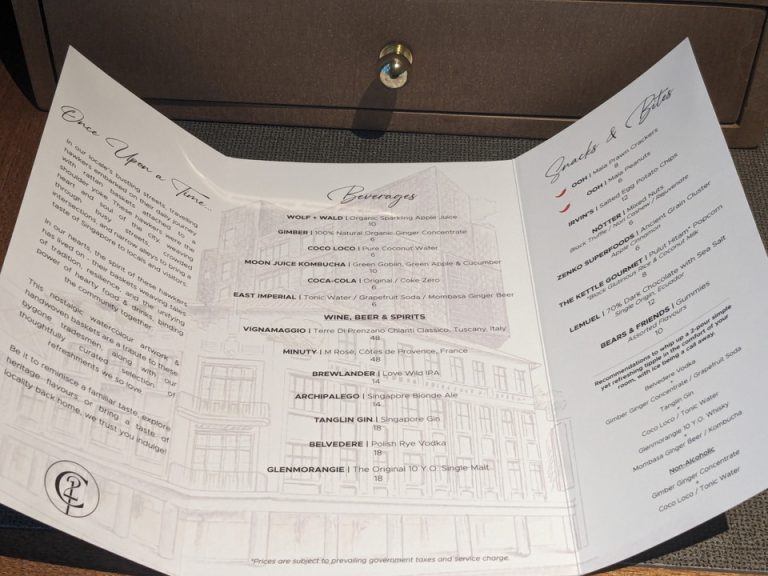 Once Upon a Time...
In our locale's bustling streets, travelling
hawkers embarked on their daily journey
with rattan baskets attached to a
shoulder yoke. These hawkers were the
heart and soul of the city, weaving
through busy streets, crowded
intersections and narrow alleys to bring a
taste of Singapore to locals and visitors.
In our hearts, the spirit of these hawkers
has lived on - their baskets weaving tales
of tradition, resilience, and the unifying
power of hearty food & drinks, binding
the community together.
This nostalgic watercolour artwork &
handwoven baskets are a tribute to these
bygone tradesmen along with our
thoughtfully curated selection of
refreshments we so love.
Be it to reminisce a familiar taste, explore
heritage flavours or bring a taste of
locality back home, we trust you indulge!
Beverages
WOLF + WALD | Organic Sparkling Apple Juice
10
GIMBER | 100% Natural Organic Ginger Concentrate
6
COCO LOCO | Pure Coconut Water
6
MOON JUICE KOMBUCHA | Green Goblin, Green Apple & Cucumber
10
COCA-COLA | Original / Coke Zero
6
EAST IMPERIAL | Tonic Water / Grapefruit Soda / Mombasa Ginger Beer
6
WINE, BEER & SPIRITS
VIGNAMAGGIO | Terre Di Prenzano Chianti Classico, Tuscany, Italy
48
MINUTY | M Rosé, Côtes de Provence, France
48
BREWLANDER | Love Wild IPA
14
ARCHIPALEGO | Singapore Blonde Ale
14
TANGLIN GIN | Singapore Gin
18
BELVEDERE | Polish Rye Vodka
18
GLENMORANGIE | The Original 10 Y.O. Single Malt
18
*Prices are subject to prevailing government taxes and service charge.
Snacks & Bites
OOH | Mala Prawn Crackers
8
OOH | Mala Peanuts
6
IRVIN'S | Salted Egg Potato Chips
12
NÖTTER | Mixed Nuts
Black Truffle / Nori Cashew / Rejuvenate
6
ZENKO SUPERFOODS | Ancient Grain Cluster
Apple Cinnamon
6
THE KETTLE GOURMET | Pulut Hitam* Popcorn
*Black Glutinous Rice & Coconut Milk
8
LEMUEL | 70% Dark Chocolate with Sea Salt
Single Origin, Ecuador
12
BEARS & FRIENDS | Gummies
Assorted Flavours
10
Recommendations to whip up a 2-pour simple
yet refreshing tipple in the comfort of your
room, with ice being a call away.
Belvedere Vodka
Gimber Ginger Concentrate / Grapefruit Soda
Tanglin Gin
Coco Loco / Tonic Water
Glenmorangie 10 Y.O. Whisky
Mombasa Ginger Beer / Kombucha
Non-Alcoholic
Gimber Ginger Concentrate
Coco Loco / Tonic Water